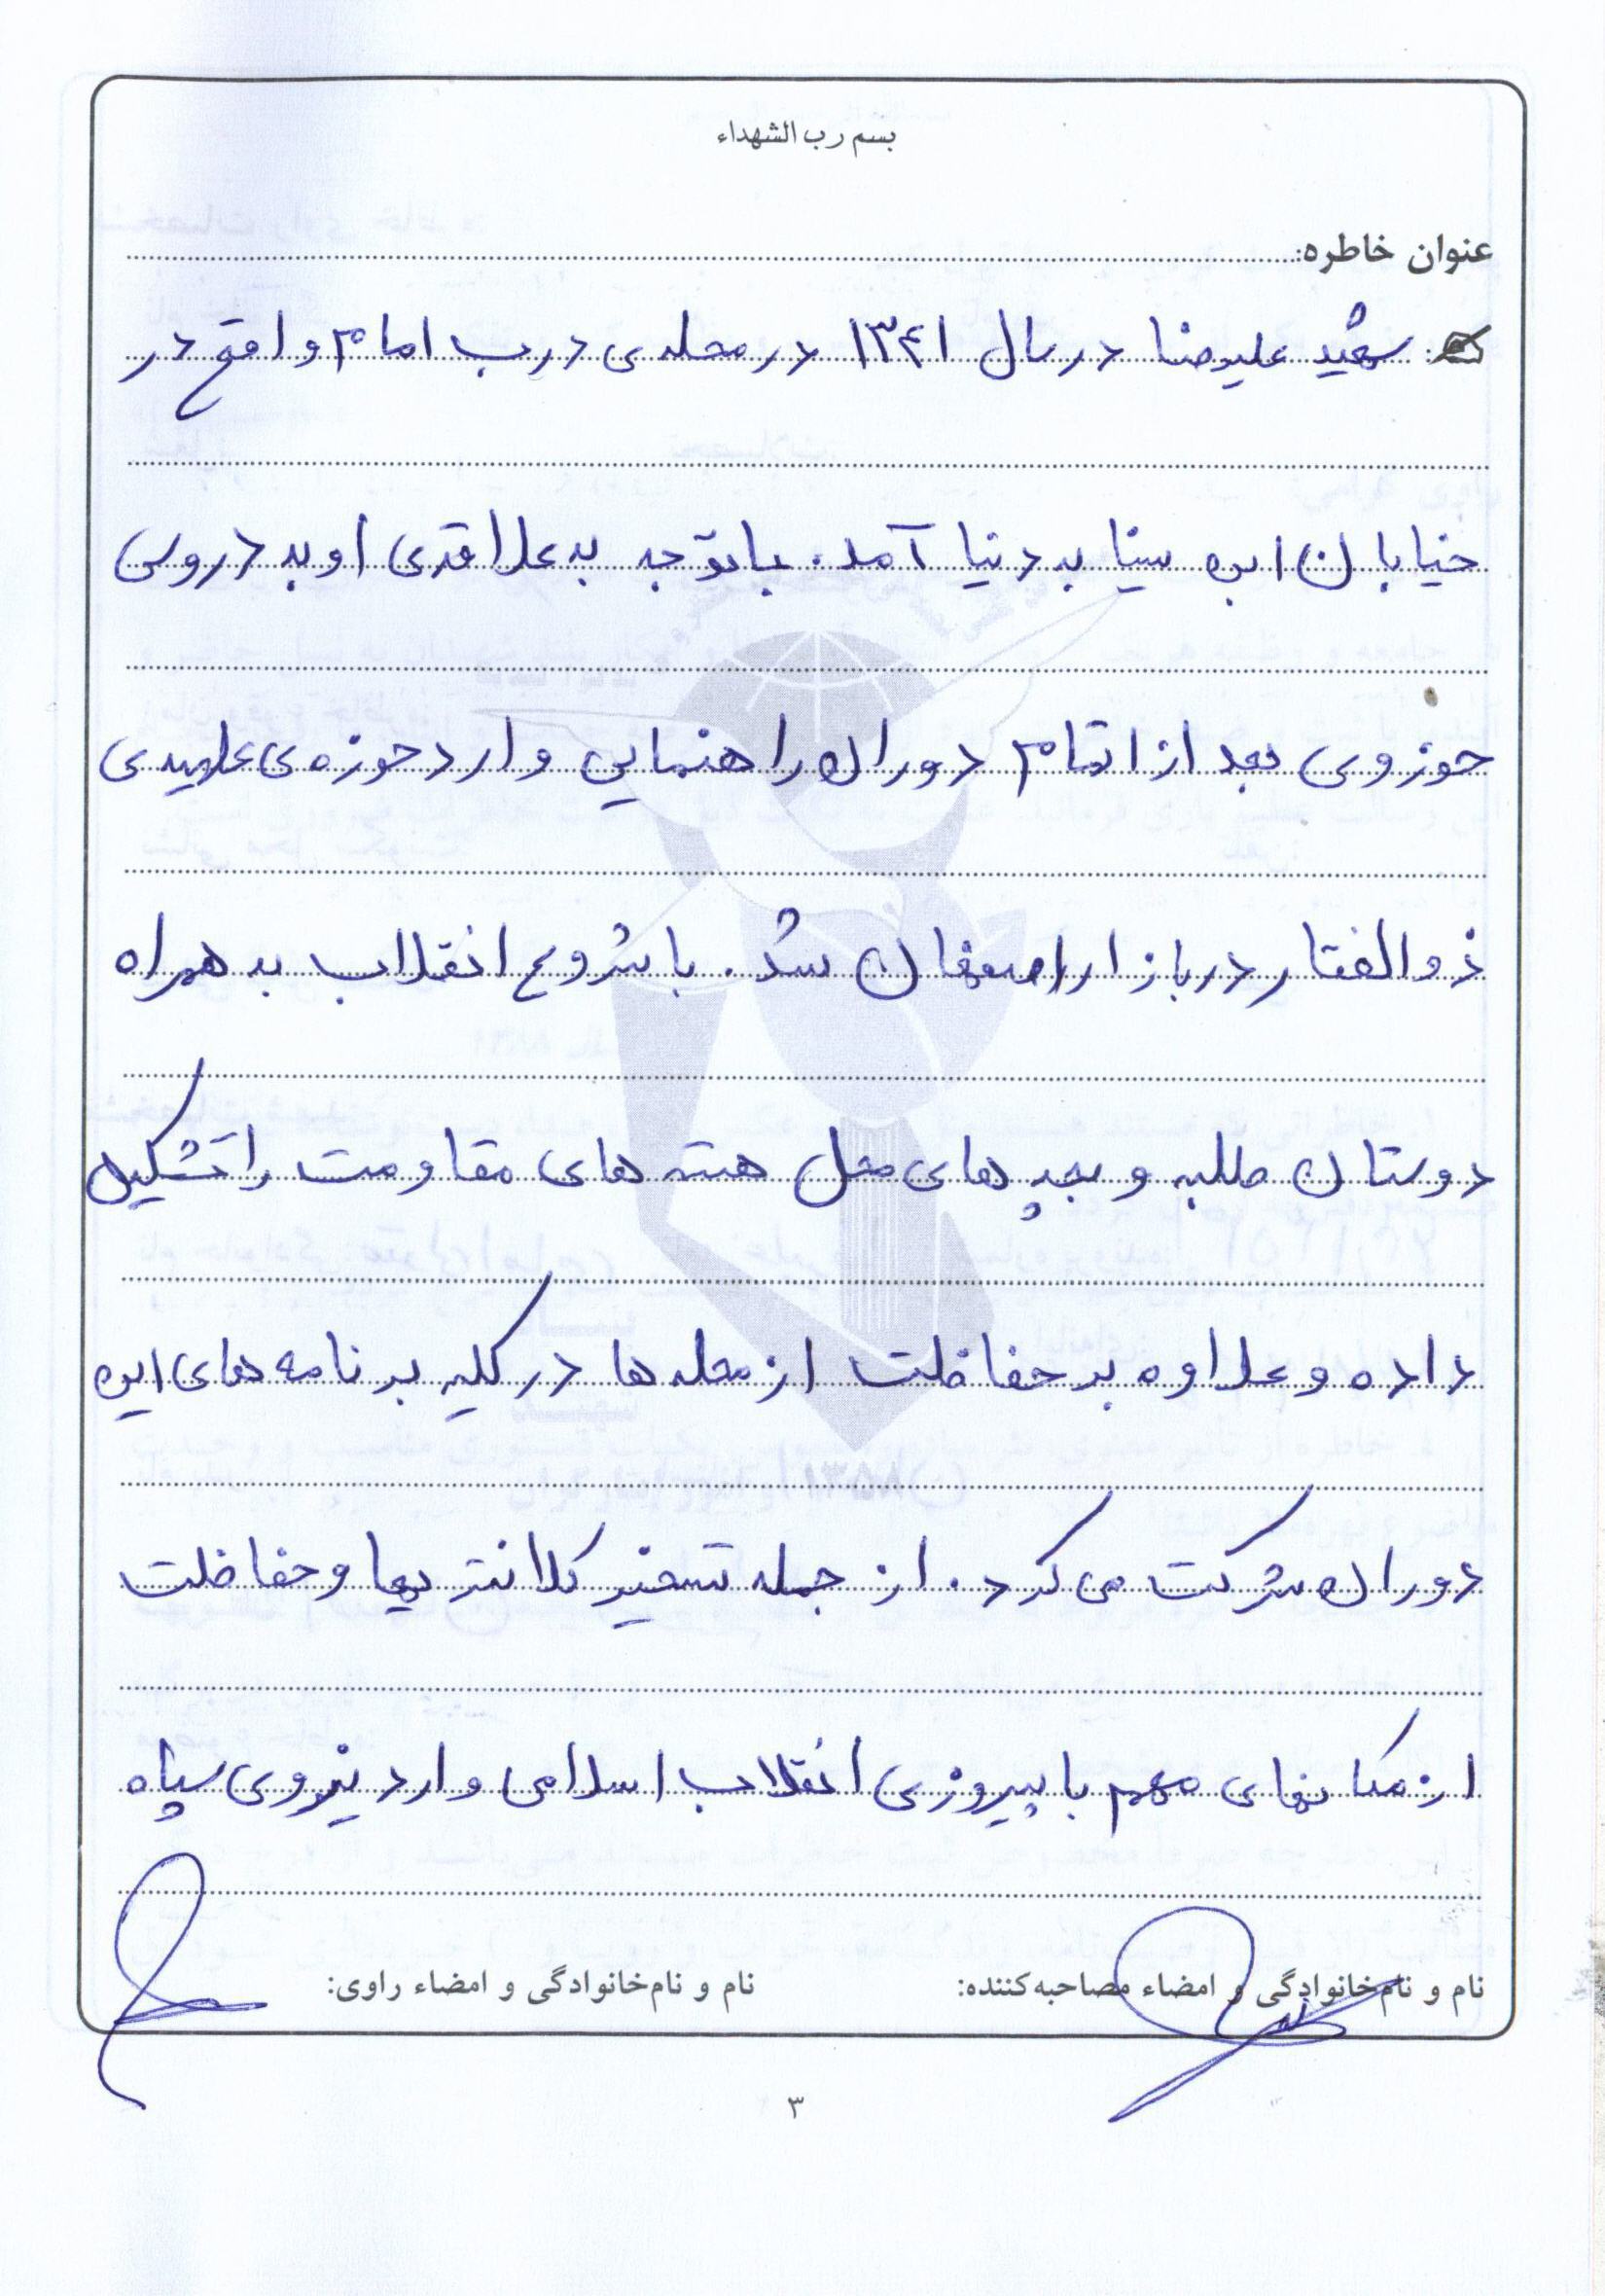 بسم رب الشهداء
عنوان خاطره:
شهید علیرضا در سال ۱۳۴۱ در محله‌ی درب امام واقع در
خیابان ابن سینا به دنیا آمد. با توجه به علاقه‌ی او به دروس
حوزوی بعد از اتمام دوران راهنمایی وارد حوزه‌ی علمیه‌ی
ذوالفقار در بازار اصفهان شد. با شروع انقلاب به همراه
دوستان طلبه و بچه های محل هسته های مقاومت را تشکیل
داده و علاوه بر حفاظت از محله ها در کلیه برنامه های این
دوران شرکت می کرد. از جمله تسخیر کلانتریها و حفاظت
از مکانهای مهم با پیروزی انقلاب اسلامی وارد نیروی سپاه
نام و نام‌خانوادگی و امضاء مصاحبه‌کننده:
نام و نام‌خانوادگی و امضاء راوی:
۳